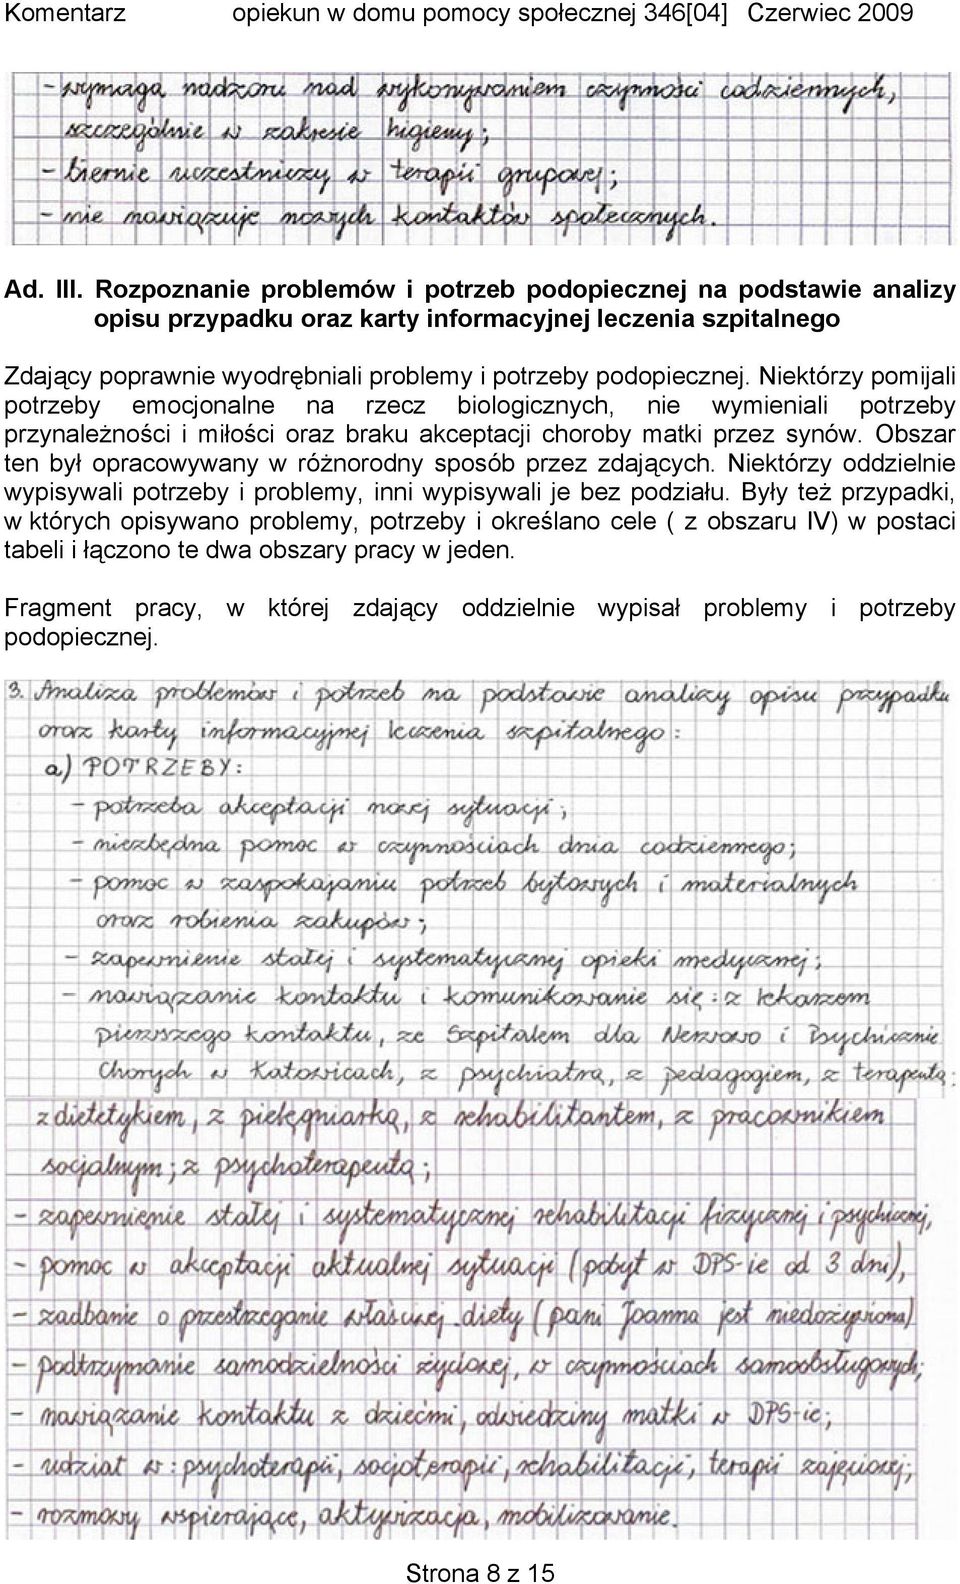 Komentarz opiekun w domu pomocy społecznej 346[04] Czerwiec 2009
- wymaga nadzoru nad wykonywaniem czynności codziennych,
szczególnie w zakresie higieny;
- biernie uczestniczy w terapii grupowej;
- nie nawiązuje nowych kontaktów społecznych.
Ad. III. Rozpoznanie problemów i potrzeb podopiecznej na podstawie analizy
opisu przypadku oraz karty informacyjnej leczenia szpitalnego
Zdający poprawnie wyodrębniali problemy i potrzeby podopiecznej. Niektórzy pomijali
potrzeby emocjonalne na rzecz biologicznych, nie wymieniali potrzeby
przynależności i miłości oraz braku akceptacji choroby matki przez synów. Obszar
ten był opracowywany w różnorodny sposób przez zdających. Niektórzy oddzielnie
wypisywali potrzeby i problemy, inni wypisywali je bez podziału. Były też przypadki,
w których opisywano problemy, potrzeby i określano cele ( z obszaru IV) w postaci
tabeli i łączono te dwa obszary pracy w jeden.
Fragment pracy, w której zdający oddzielnie wypisał problemy i potrzeby
podopiecznej.
3. Analiza problemów i potrzeb na podstawie analizy opisu przypadku
oraz karty informacyjnej leczenia szpitalnego:
a) POTRZEBY:
- potrzeba akceptacji nowej sytuacji;
- niezbędna pomoc w czynnościach dnia codziennego;
- pomoc w zaspokajaniu potrzeb bytowych i materialnych
oraz robienia zakupów;
- zapewnienie stałej i systematycznej opieki medycznej;
- nawiązanie kontaktu i komunikowanie się: z lekarzem
pierwszego kontaktu, ze Szpitalem dla Nerwowo i Psychicznie
Chorych w Katowicach, z psychiatrą, z pedagogiem, z terapeutą;
z dietetykiem, z pielęgniarką, z rehabilitantem, z pracownikiem
socjalnym; z psychoterapeutą;
- zapewnienie stałej i systematycznej rehabilitacji fizycznej i psychicznej,
- pomoc w akceptacji aktualnej sytuacji (pobyt w DPS-ie od 3 dni),
- zadbanie o przestrzeganie właściwej diety (pani Joanna jest niedożywiona)
- podtrzymanie samodzielności życiowej, w czynnościach samoobsługowych;
- nawiązanie kontaktu z dziećmi, odwiedziny matki w DPS-ie;
- udział w: psychoterapii, socjoterapii, rehabilitacji, terapii zajęciowej;
- rozmowy wspierające, aktywizacja, mobilizowanie.
Strona 8 z 15